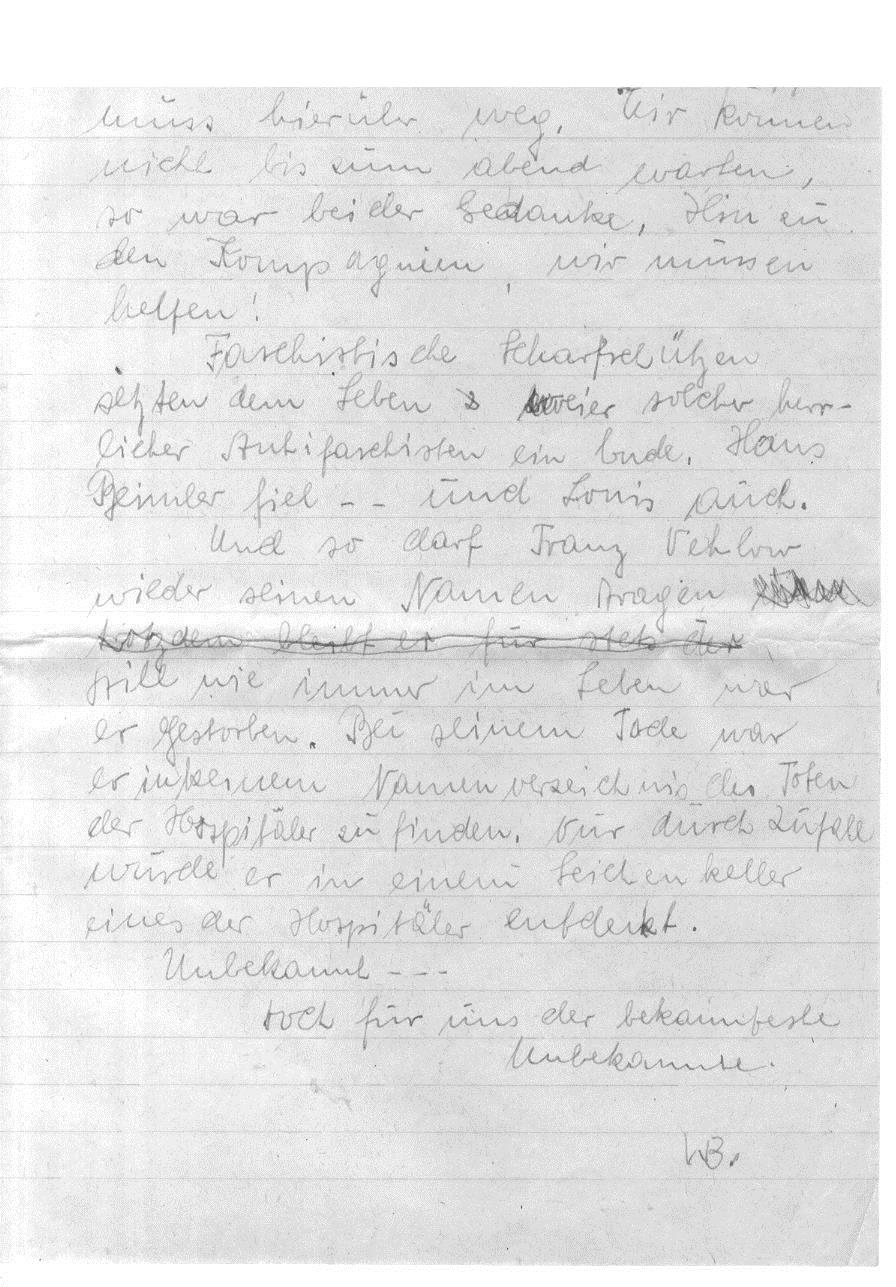 muss hierüber weg. Wir können
nicht bis zum abend warten,
so war beider Gedanke, Hin zu
den Kompagnien, wir müssen
helfen!
Faschistische Scharfschützen
setzten dem Leben zweier solcher herr-
licher Antifaschisten ein Ende. Hans
Beimler fiel -- und Louis auch.
Und so darf Franz Vehlow
wieder seinen Namen tragen
trotzdem bleibt er für stets der
still wie immer im Leben war
er gestorben. Bei seinem Tode war
er in keinem Namenverzeichnis der Toten
der Hospitäler zu finden. Nur durch Zufall
wurde er in einem Leichenkeller
eines der Hospitäler entdekt.
Unbekannt ---
doch für uns der bekannteste
Unbekannte.